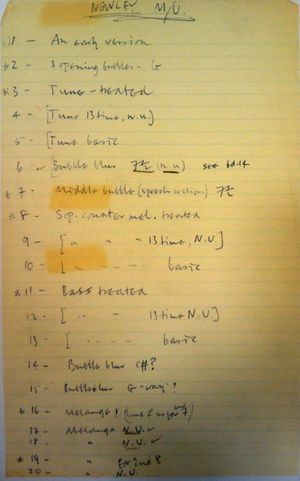 NEWLEY M/U.
01 - An early version
*2 - 3 opening bubbles - G
*3 - Tune - treated
4 - [Tune 13 time, N.U.]
5 - [Tune basic
6 - Bubble blur (N.U) see bd.14
*7 - Middle bubble (speech section)
*8 - Sop. counter mel. treated
9 - [ " " " 13 time, N.U.]
10 - [ - - - - basic
*11 - Bass treated
12 - [ " " 13 time N.U.]
13 - [ - - - - basic
14 - Bubble blur C#?
15 - Bubble blur G-way?
*16 - Melange 1
17 - Melange N.U. ✓
18 - " N.U. ✓
*19 - " For 2nd 8
20 - " N.U.